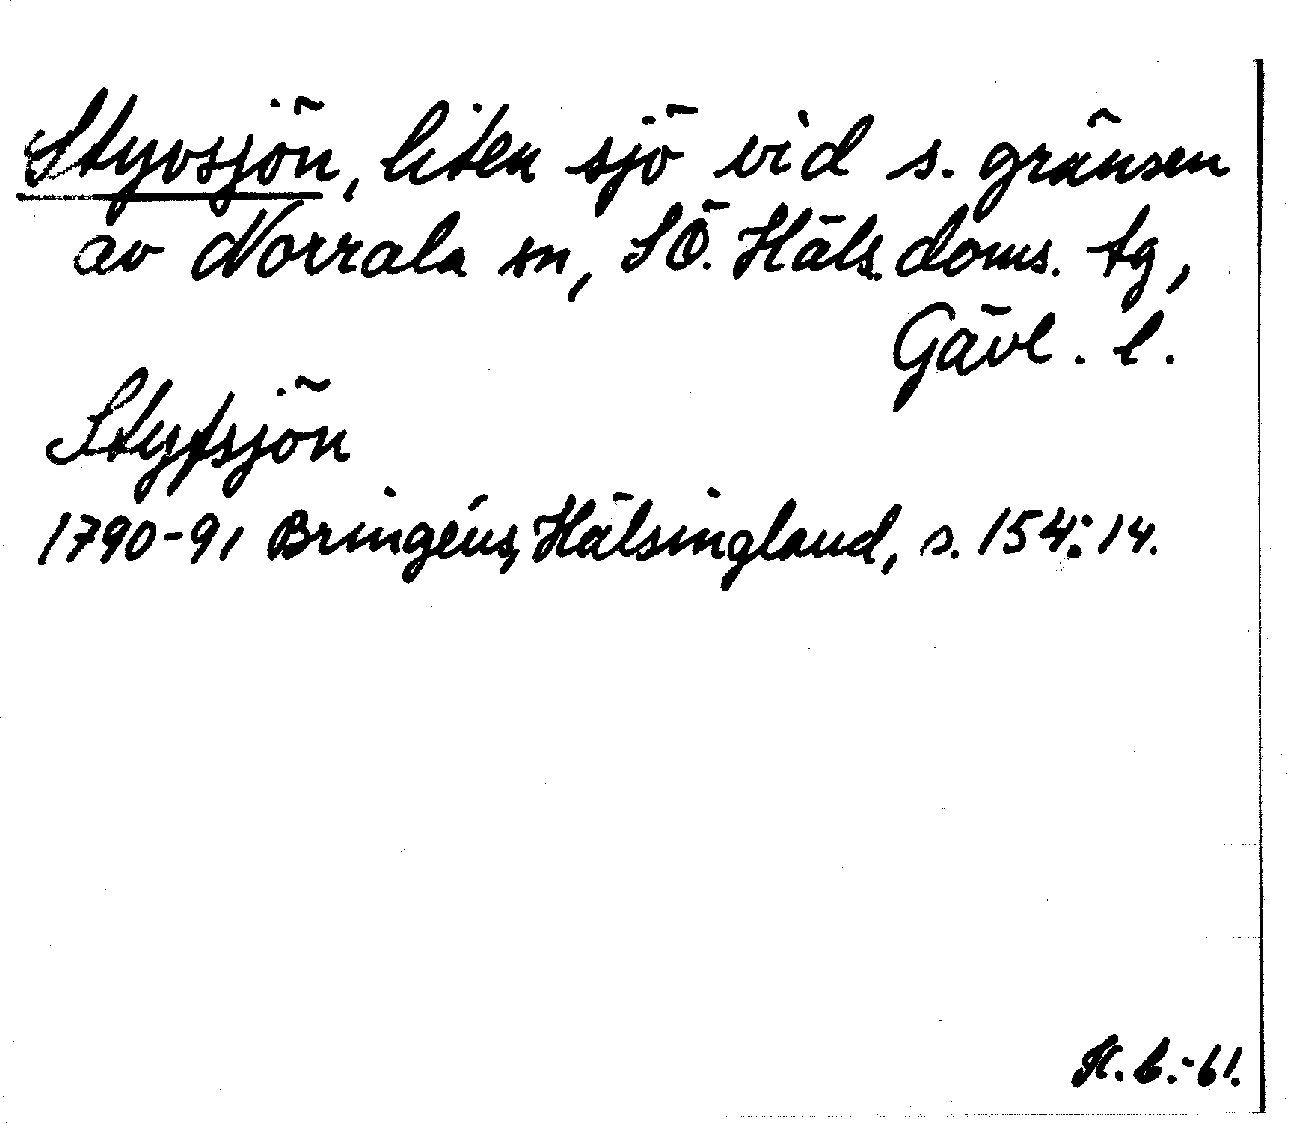 Styvsjön, liten sjö vid s. gränsen
av Norrala sn, SÖ. Häls. doms. tg,
Gävl. l.
Styfsjön
1790-91 Bringéus, Hälsingland, s. 154:14.
H.b.-61.